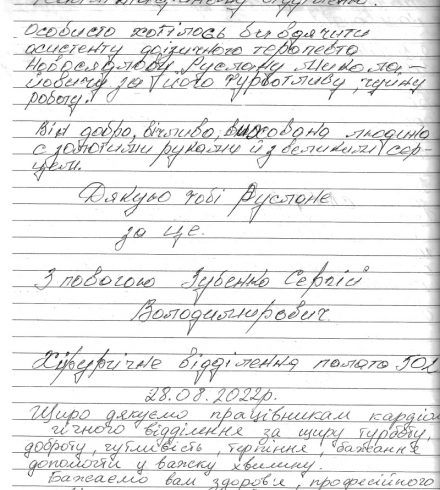 відділенню.
Особисто хотілось би вдячити
асистенту фізичного терапевта
Руслану Микола-
йовичу за його турботливу, чуйну
роботу.
Він добра, вічлива, вихована людина
с золотими руками й з великим сер-
цем.
Дякую тобі Руслане
за це.
З повагою Зубенко Сергій
Володимирович.
Хірургічне відділення палата 502
28.08.2022р.
Щиро дякуємо працівникам кардіол
гічного відділення за щиру турботу,
доброту, чутливість, терпіння, бажання
допомогти у важку хвилину.
Бажаємо вам здоров'я, професійного